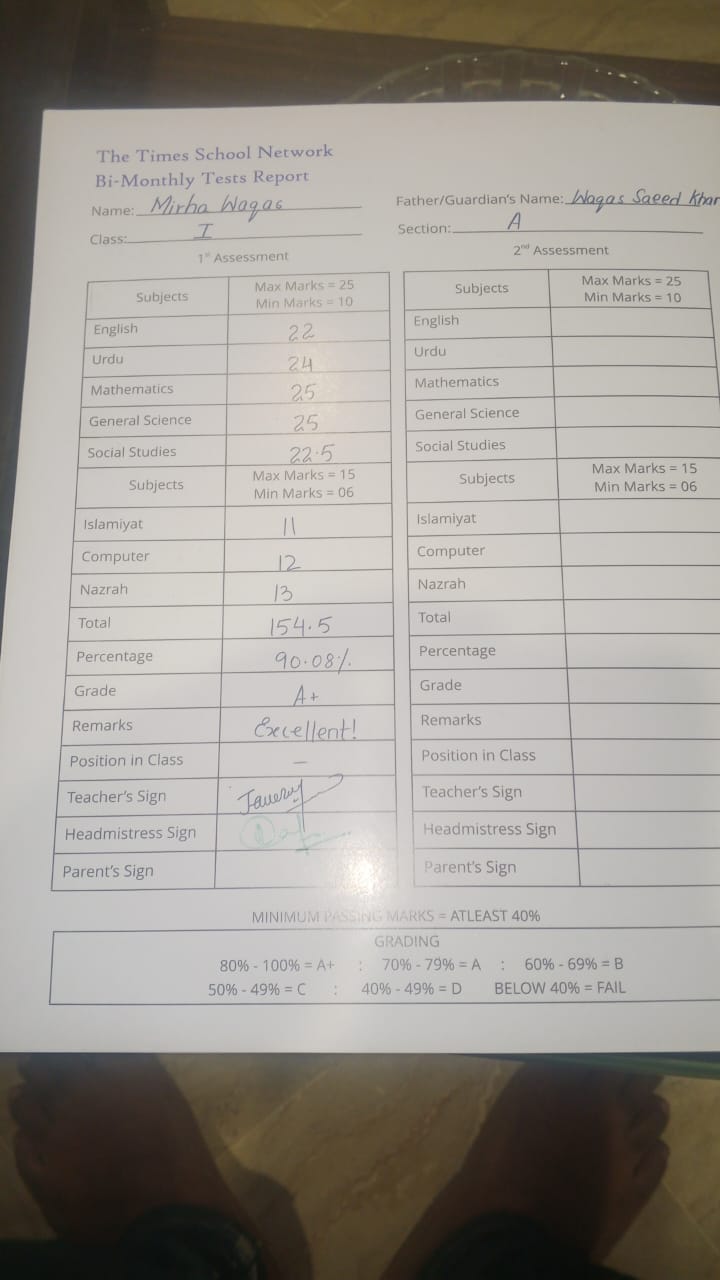 The Times School Network
Bi-Monthly Tests Report
Name: Mirha Waqas Father/Guardian's Name: Waqas Saeed Khan
Class: I Section: A
1st Assessment
Subjects Max Marks = 25 Min Marks = 10
English 22
Urdu 24
Mathematics 25
General Science 25
Social Studies 22.5
Subjects Max Marks = 15 Min Marks = 06
Islamiyat 11
Computer 12
Nazrah 13
Total 154.5
Percentage 90.08%
Grade A+
Remarks Excellent!
Position in Class –
Teacher's Sign
Headmistress Sign
Parent's Sign
2nd Assessment
Subjects Max Marks = 25 Min Marks = 10
English
Urdu
Mathematics
General Science
Social Studies
Subjects Max Marks = 15 Min Marks = 06
Islamiyat
Computer
Nazrah
Total
Percentage
Grade
Remarks
Position in Class
Teacher's Sign
Headmistress Sign
Parent's Sign
MINIMUM PASSING MARKS = ATLEAST 40%
GRADING
80% - 100% = A+ : 70% - 79% = A : 60% - 69% = B
50% - 49% = C : 40% - 49% = D BELOW 40% = FAIL